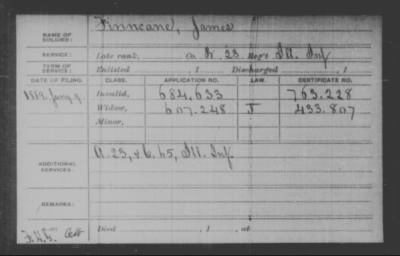 NAME OF SOLDIER: Finneane, James
SERVICE: Late rank, Co. K, 23 Reg't Ill. Inf.
TERM OF SERVICE: Enlisted , 1 Discharged , 1
DATE OF FILING. CLASS. APPLICATION NO. LAW. CERTIFICATE NO.
Invalid, 684,633 763.228
Widow, 607.248 J 433.807
Minor,
ADDITIONAL SERVICES: A. 23, & C. 65, Ill. Inf.
REMARKS:
Died , 1 , at